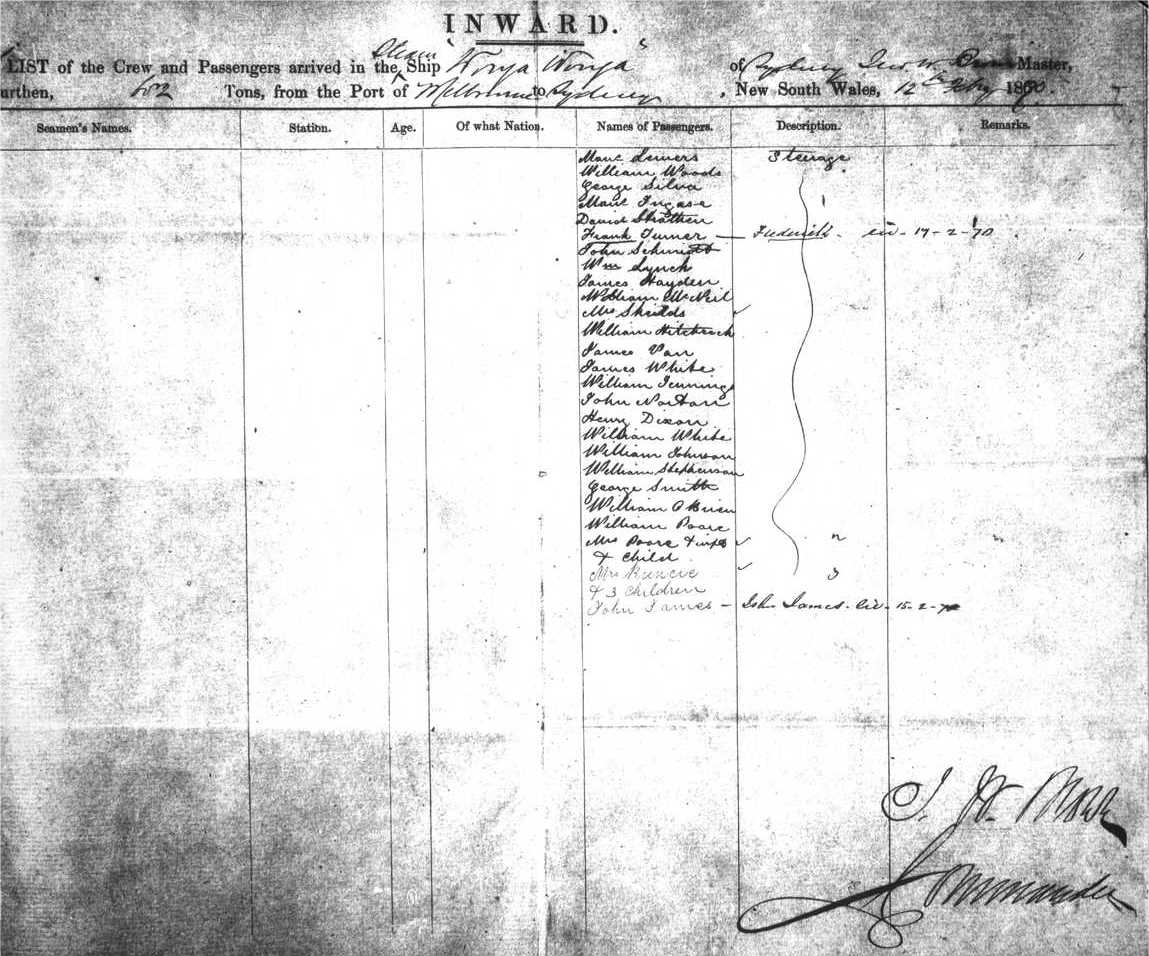 INWARD.
LIST of the Crew and Passengers arrived in the Steam Ship "Wonga Wonga" of Sydney Master,
urthen, 652 Tons, from the Port of Melbourne to Sydney, New South Wales, 12th Feby 1870.
Seamen's Names. Station. Age. Of what Nation. Names of Passengers. Description. Remarks.
Steerage
William Woods
George Silva
David Stratten
Frank Turner — Frederick - 17-2-70
John Schmidt
Wm Lynch
James Hayden
William McNeil
Mrs Shields
William Hitchcock
James Van
James White
William Jennings
John Norton
Henry Dixon
William White
William Johnson
William Stephenson
George Smith
William O'Brien
William Poore
Mrs Poore & inft 2
& Child
Mrs Runcie 3
& 3 children
John James — John James - 15-2-70
Commander